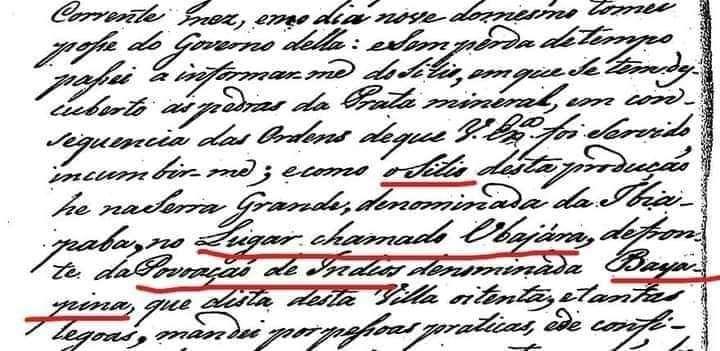 Corrente mez, em o dia nove do mesmo tomei
posse do Governo della: e sem perda de tempo
passei a informar-me do sitio, em que se tem des-
cuberto as pedras da Prata mineral, em con-
sequencia das Ordens de que V. Exª foi servido
incumbir-me; e como o sitio desta produçaõ
he na Serra Grande, denominada da Ibia-
paba, no Lugar chamado Ubajára, defron-
te da Povoaçaõ de Indios denominada Baya-
pina, que dista desta Villa oitenta, e tantas
legoas, mandei por pessoas praticas, e de confi-